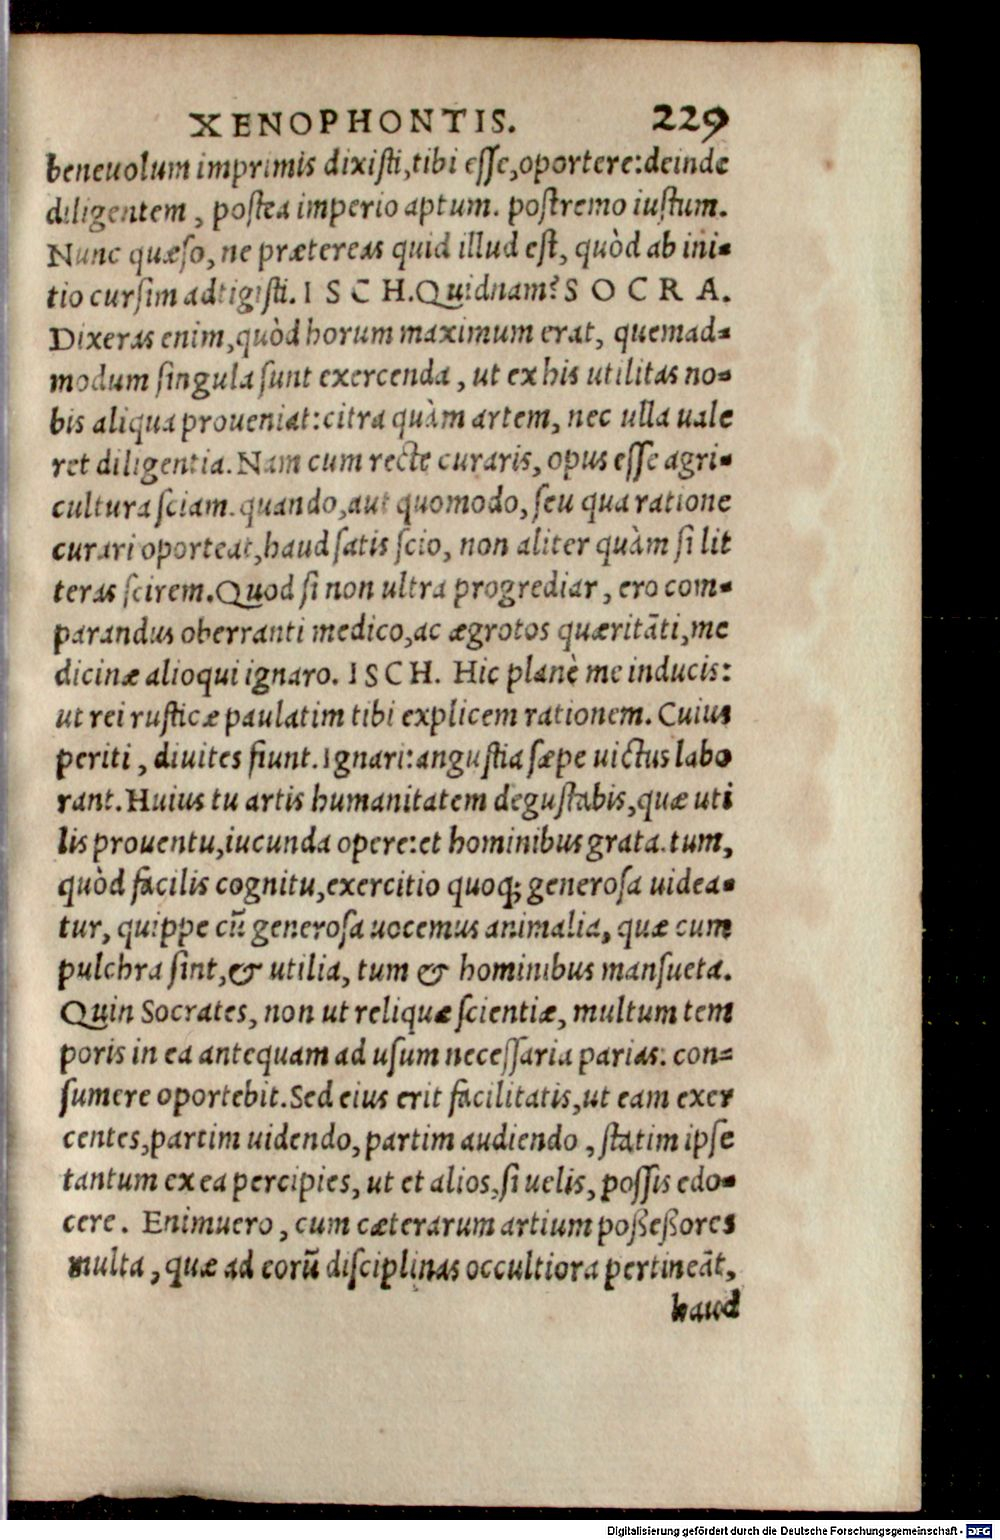 XENOPHONTIS. 229
beneuolum imprimis dixisti, tibi esse, oportere: deinde
diligentem, postea imperio aptum. postremo iustum.
Nunc quæso, ne prætereas quid illud est, quòd ab ini-
tio cursim adtigisti. I S C H. Quidnam? S O C R A.
Dixeras enim, quòd horum maximum erat, quemad-
modum singula sunt exercenda, ut ex his utilitas no-
bis aliqua proueniat: citra quàm artem, nec ulla uale
ret diligentia. Nam cum recte curaris, opus esse agri-
cultura sciam. quando, aut quomodo, seu qua ratione
curari oporteat, haud satis scio, non aliter quàm si lit
teras scirem. Quod si non ultra progrediar, ero com-
parandus oberranti medico, ac ægrotos quæritāti, me
dicinæ alioqui ignaro. I S C H. Hic planè me inducis:
ut rei rusticæ paulatim tibi explicem rationem. Cuius
periti, diuites fiunt. Ignari: angustia sæpe uictus labo
rant. Huius tu artis humanitatem degustabis, quæ uti
lis prouentu, iucunda opere: et hominibus grata. tum,
quòd facilis cognitu, exercitio quoq; generosa uidea-
tur, quippe cū generosa uocemus animalia, quæ cum
pulchra sint, & utilia, tum & hominibus mansueta.
Quin Socrates, non ut reliquæ scientiæ, multum tem
poris in ea antequam ad usum necessaria parias: con-
sumere oportebit. Sed eius erit facilitatis, ut eam exer
centes, partim uidendo, partim audiendo, statim ipse
tantum ex ea percipies, ut et alios, si uelis, possis edo-
cere. Enimuero, cum cæterarum artium poßeßores
multa, quæ ad eorū disciplinas occultiora pertineāt,
haud
Digitalisierung gefördert durch die Deutsche Forschungsgemeinschaft - DFG